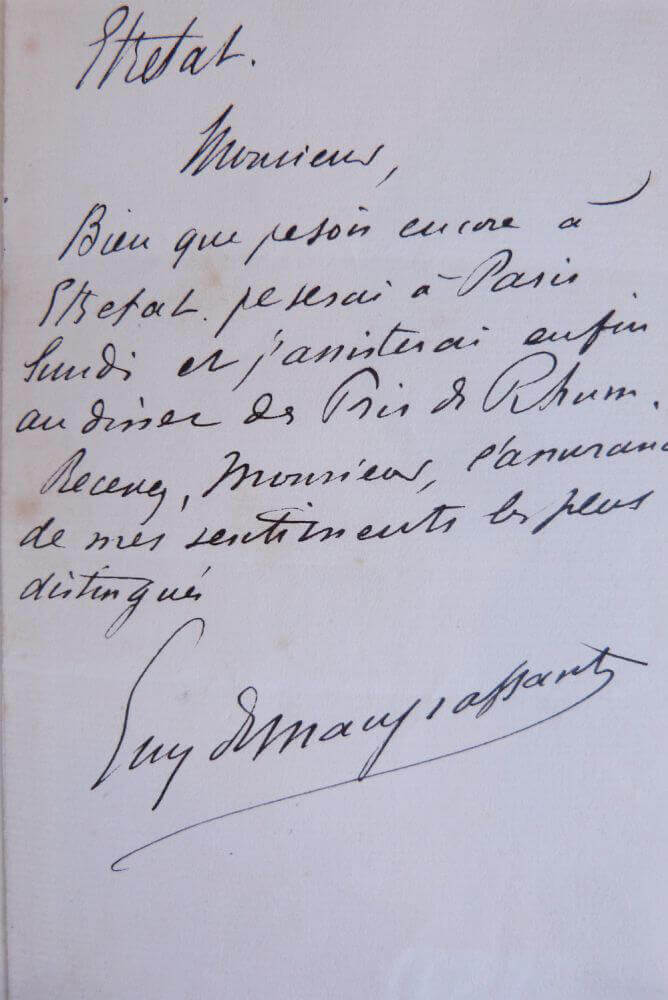 Etretat.
Monsieur,
Bien que je sois encore à
Etretat. je serai à Paris
lundi et j'assisterai enfin
au dîner des Prix de Rhum.
Recevez, Monsieur, l'assuranc
de mes sentiments les plus
distingués
Guy de Maupassant